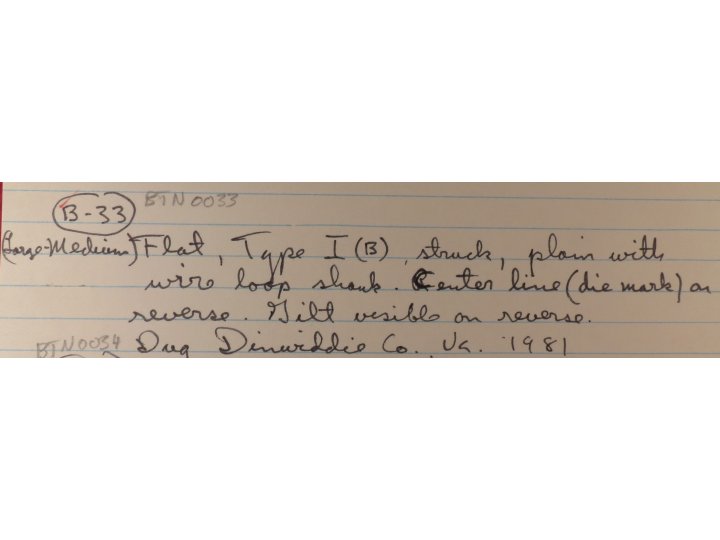 B-33 BTN0033
(Large-Medium) Flat, Type I (B), struck, plain with
wire loop shank. Center line (die mark) on
reverse. Gilt visible on reverse.
BTN0034 Dug Dinwiddie Co., Va. 1981